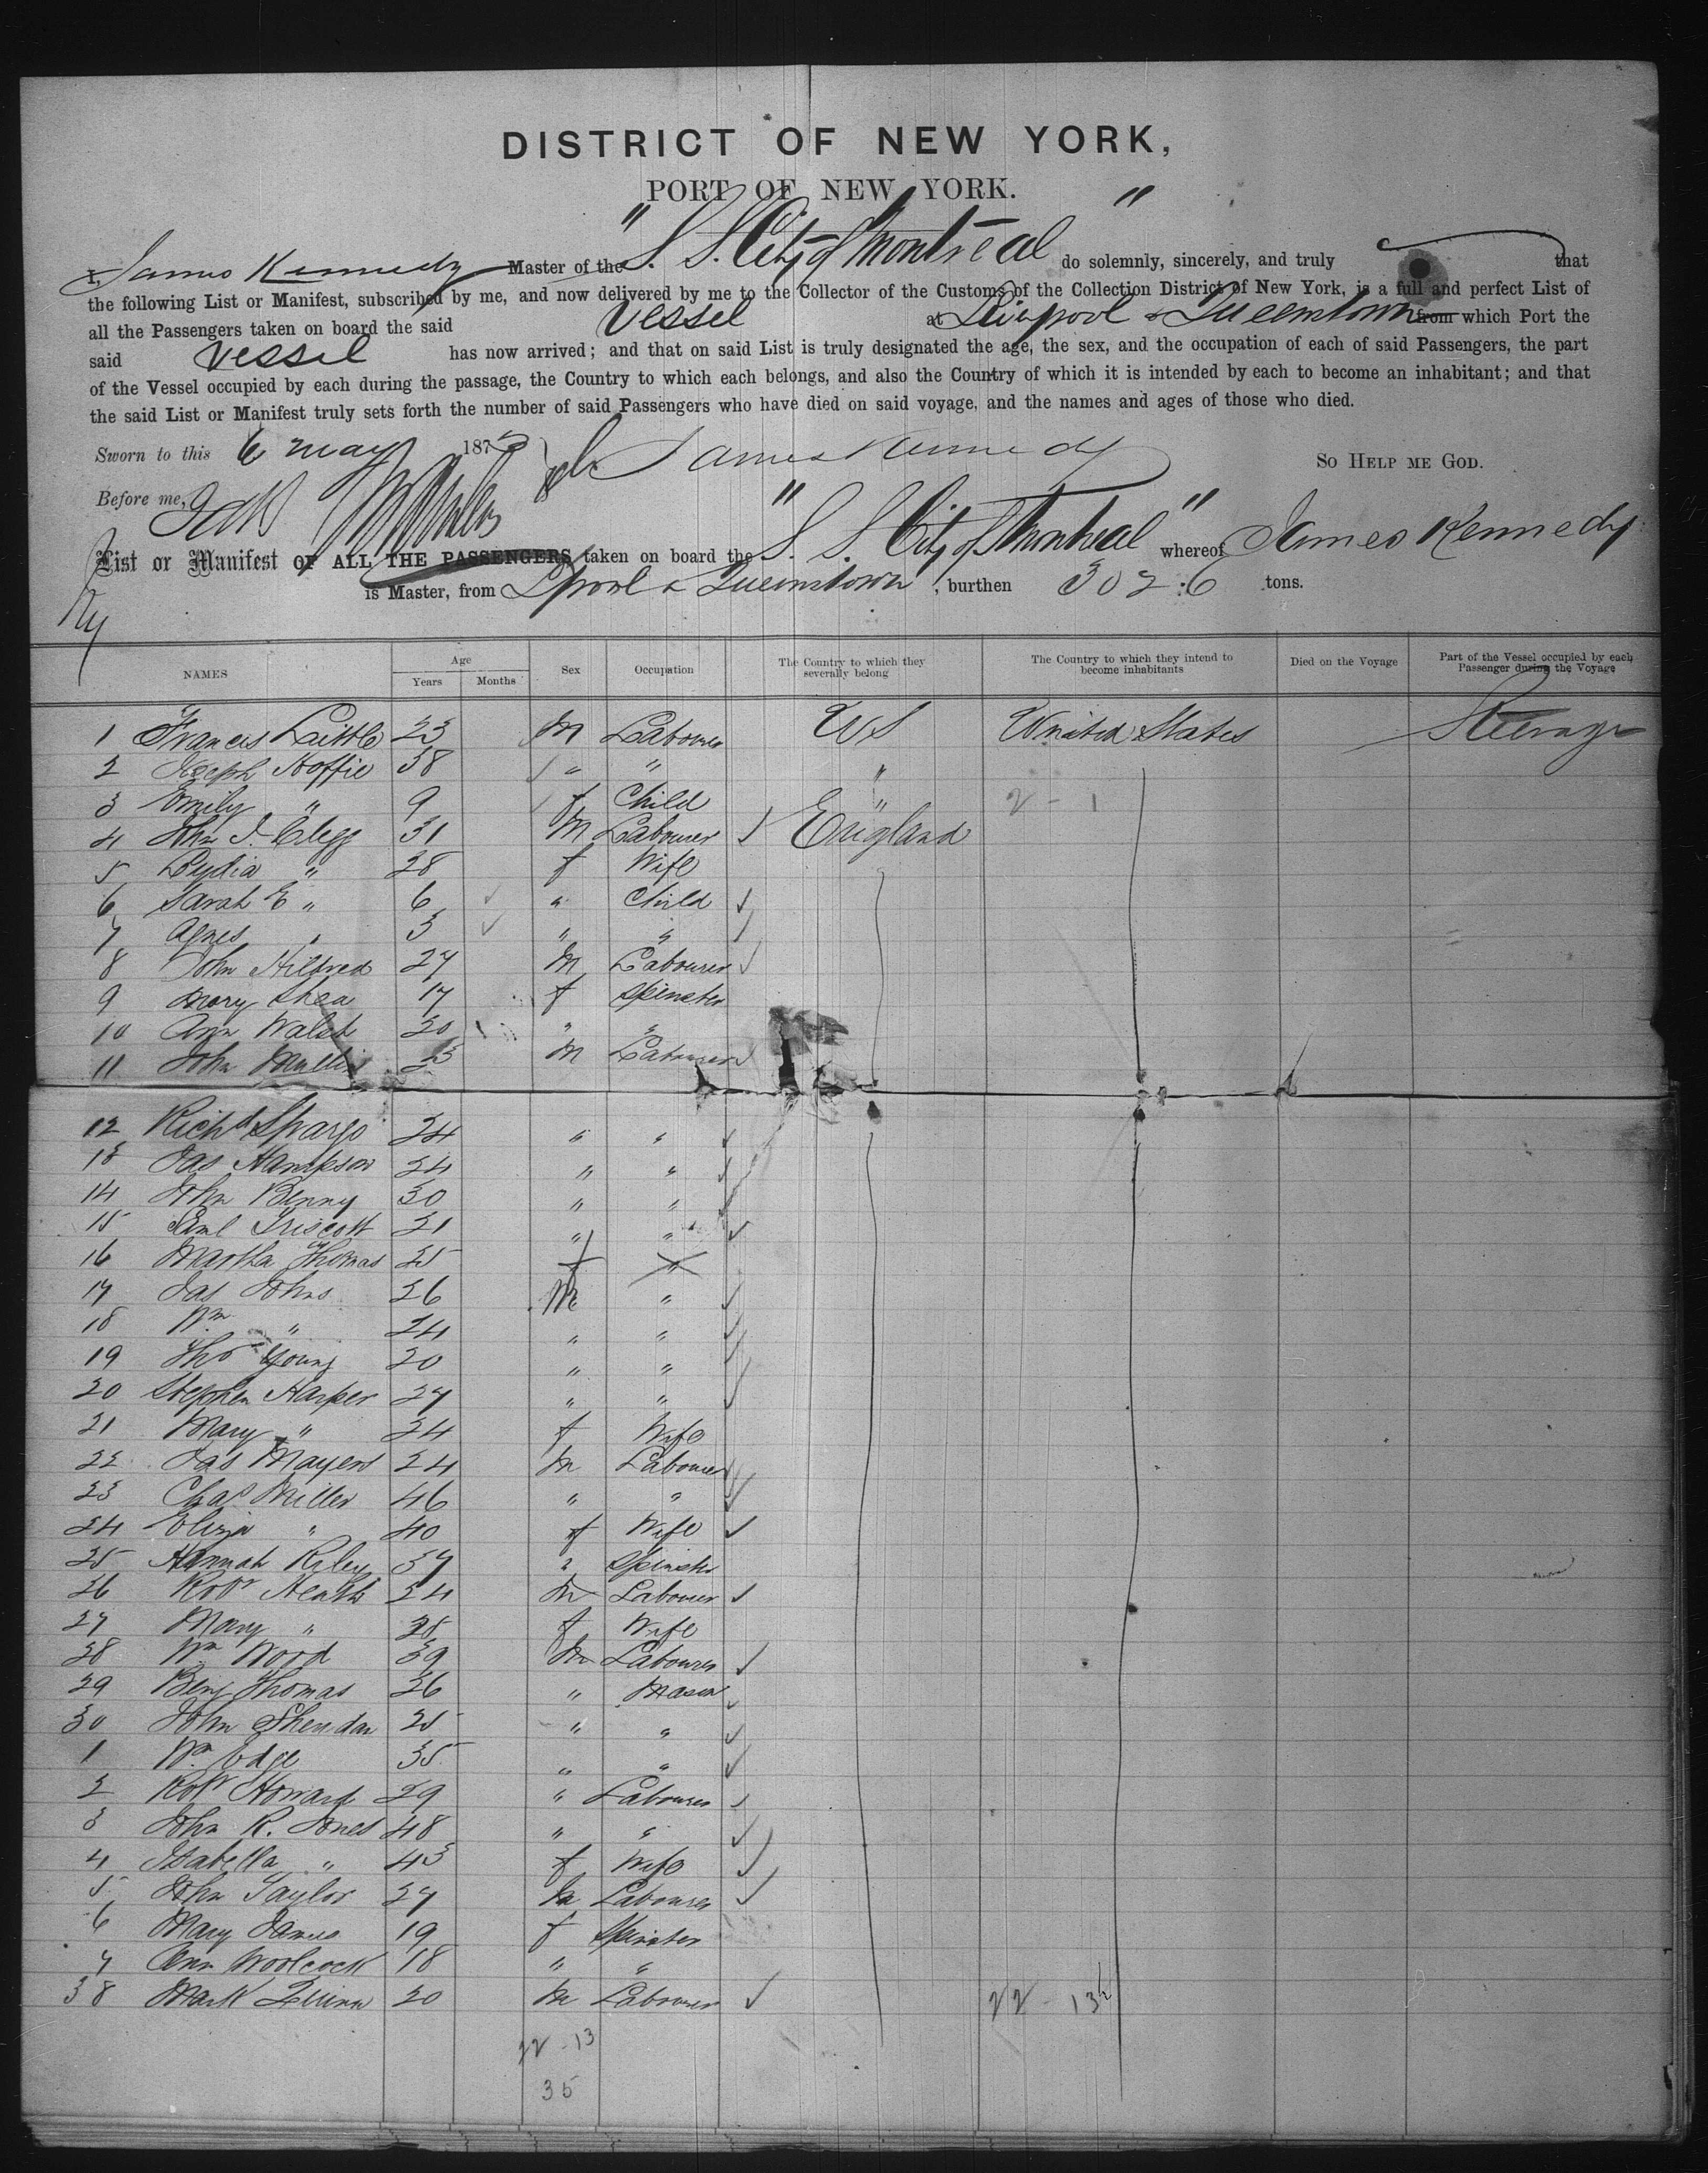 DISTRICT OF NEW YORK,
PORT OF NEW YORK.
I, James Kennedy Master of the "S. S. City of Montreal" do solemnly, sincerely, and truly that
the following List or Manifest, subscribed by me, and now delivered by me to the Collector of the Customs of the Collection District of New York, is a full and perfect List of
all the Passengers taken on board the said Vessel at Liverpool & Queenstown from which Port the
said Vessel has now arrived; and that on said List is truly designated the age, the sex, and the occupation of each of said Passengers, the part
of the Vessel occupied by each during the passage, the Country to which each belongs, and also the Country of which it is intended by each to become an inhabitant; and that
the said List or Manifest truly sets forth the number of said Passengers who have died on said voyage, and the names and ages of those who died.
Sworn to this 6 May 187 James Kennedy SO HELP ME GOD.
Before me,
List or Manifest OF ALL THE PASSENGERS taken on board the "S. S. City of Montreal" whereof James Kennedy
is Master, from Lpool & Queenstown, burthen 302:6 tons.
NAMES Age Years Months Sex Occupation The Country to which they severally belong The Country to which they intend to become inhabitants Died on the Voyage Part of the Vessel occupied by each Passenger during the Voyage
1 Francis Little 23 M Labourer US United States Steerage
2 Joseph Hoffie 38 " " "
3 Emily " 9 f Child " 2 - 1
4 John J. Clegg 31 M Labourer England
5 Lydia " 28 f Wife
6 Sarah E " 6 " Child
7 Agnes " 3 " "
8 John Hildred 27 M Labourer
9 Mary Shea 17 f Spinster
10 Ann Walsh 20 " "
11 John Mullin 23 M Labourer
12 Richd Spargo 24 " "
13 Jas Hampson 24 " "
14 John Benny 30 " "
15 Saml Triscott 21 " "
16 Martha Thomas 25 f "
17 Jas Johns 26 M "
18 Wm " 24 " "
19 Thos Young 20 " "
20 Stephen Harper 27 " "
21 Mary " 24 f Wife
22 Jas Mayers 24 M Labourer
23 Chas Miller 46 " "
24 Eliza " 40 f Wife
25 Hannah Riley 37 " Spinster
26 Robt Heath 24 M Labourer
27 Mary " 28 f Wife
28 Wm Wood 39 M Labourer
29 Benj Thomas 26 " Mason
30 John Sheridan 25 " "
1 Wm Edge 35 " "
2 Robt Howard 29 " Labourer
3 John R. Jones 48 " "
4 Isabella " 43 f Wife
5 John Taylor 27 M Labourer
6 Mary James 19 f Spinster
7 Ann Woolcock 18 " "
38 Mark Quinn 20 M Labourer 22 - 13
22 - 13
35